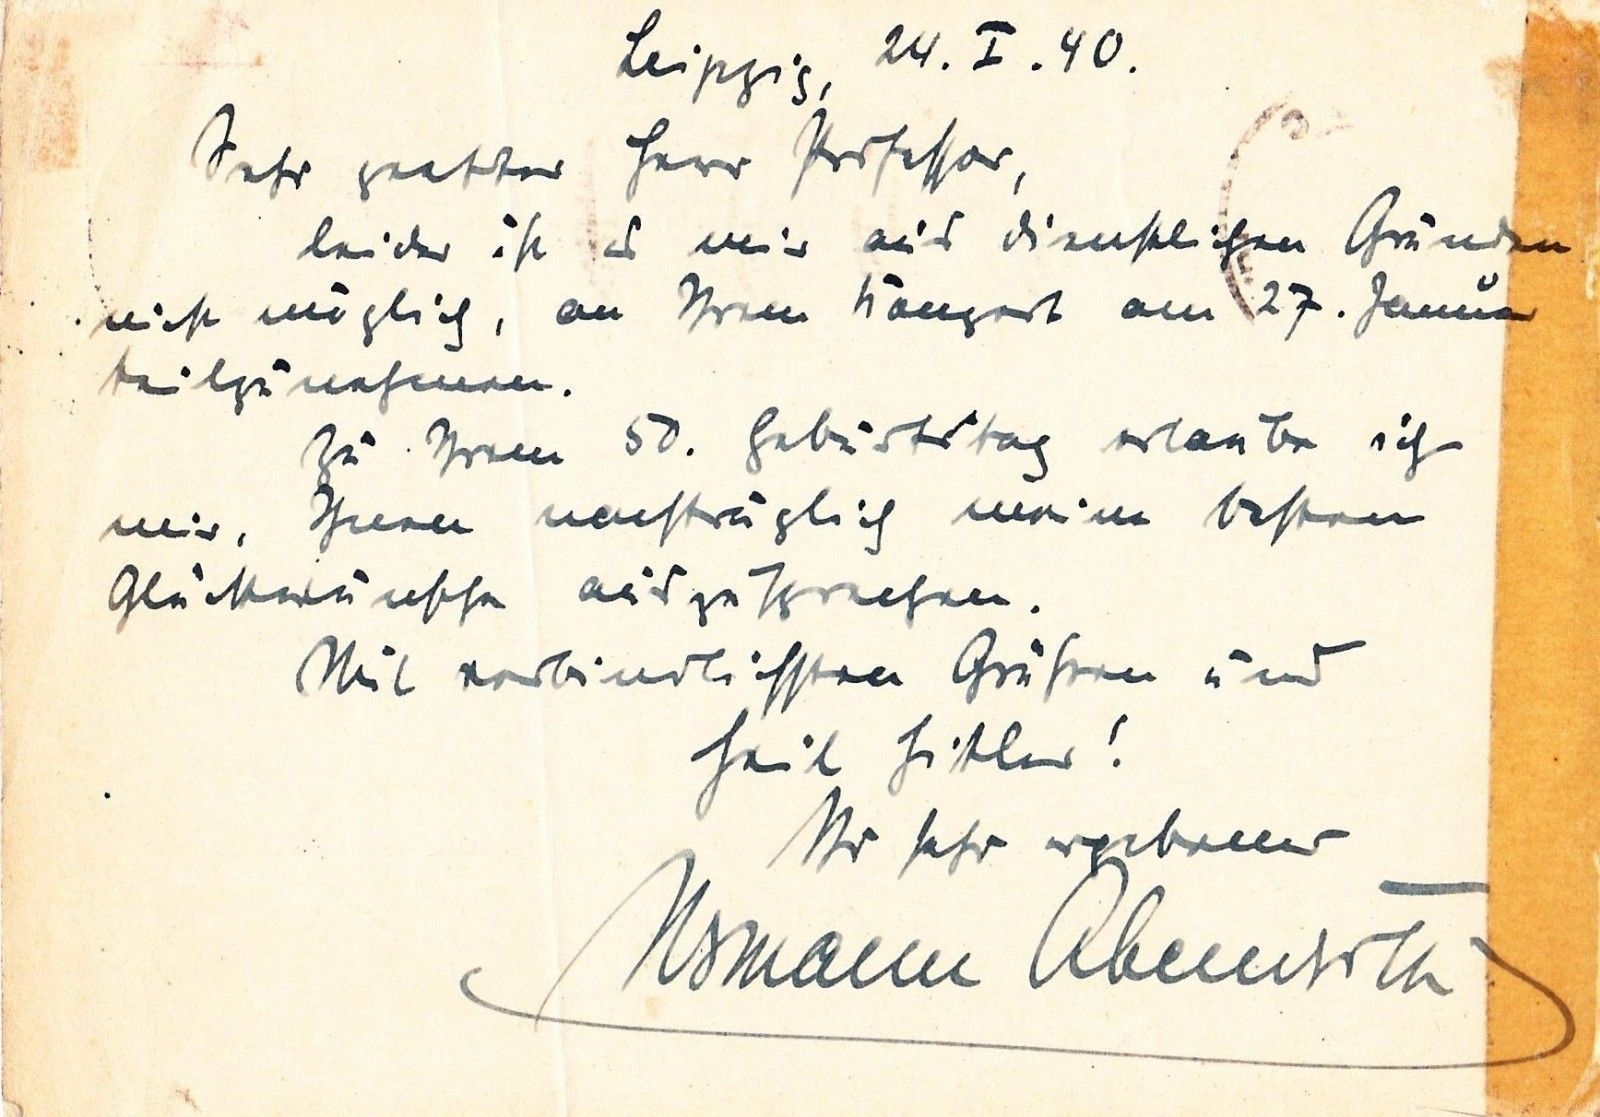 Leipzig, 24. I. 40.
Sehr geehrter Herr Professor,
leider ist es mir aus dienstlichen Gründen
nicht möglich, an Ihrem Konzert am 27. Januar
teilzunehmen.
Zu Ihrem 50. Geburtstag erlaube ich
mir, Ihnen nachträglich meine besten
Glückwünsche auszusprechen.
Mit verbindlichsten Grüßen und
Heil Hitler!
Ihr sehr ergebener
Hermann Abendroth